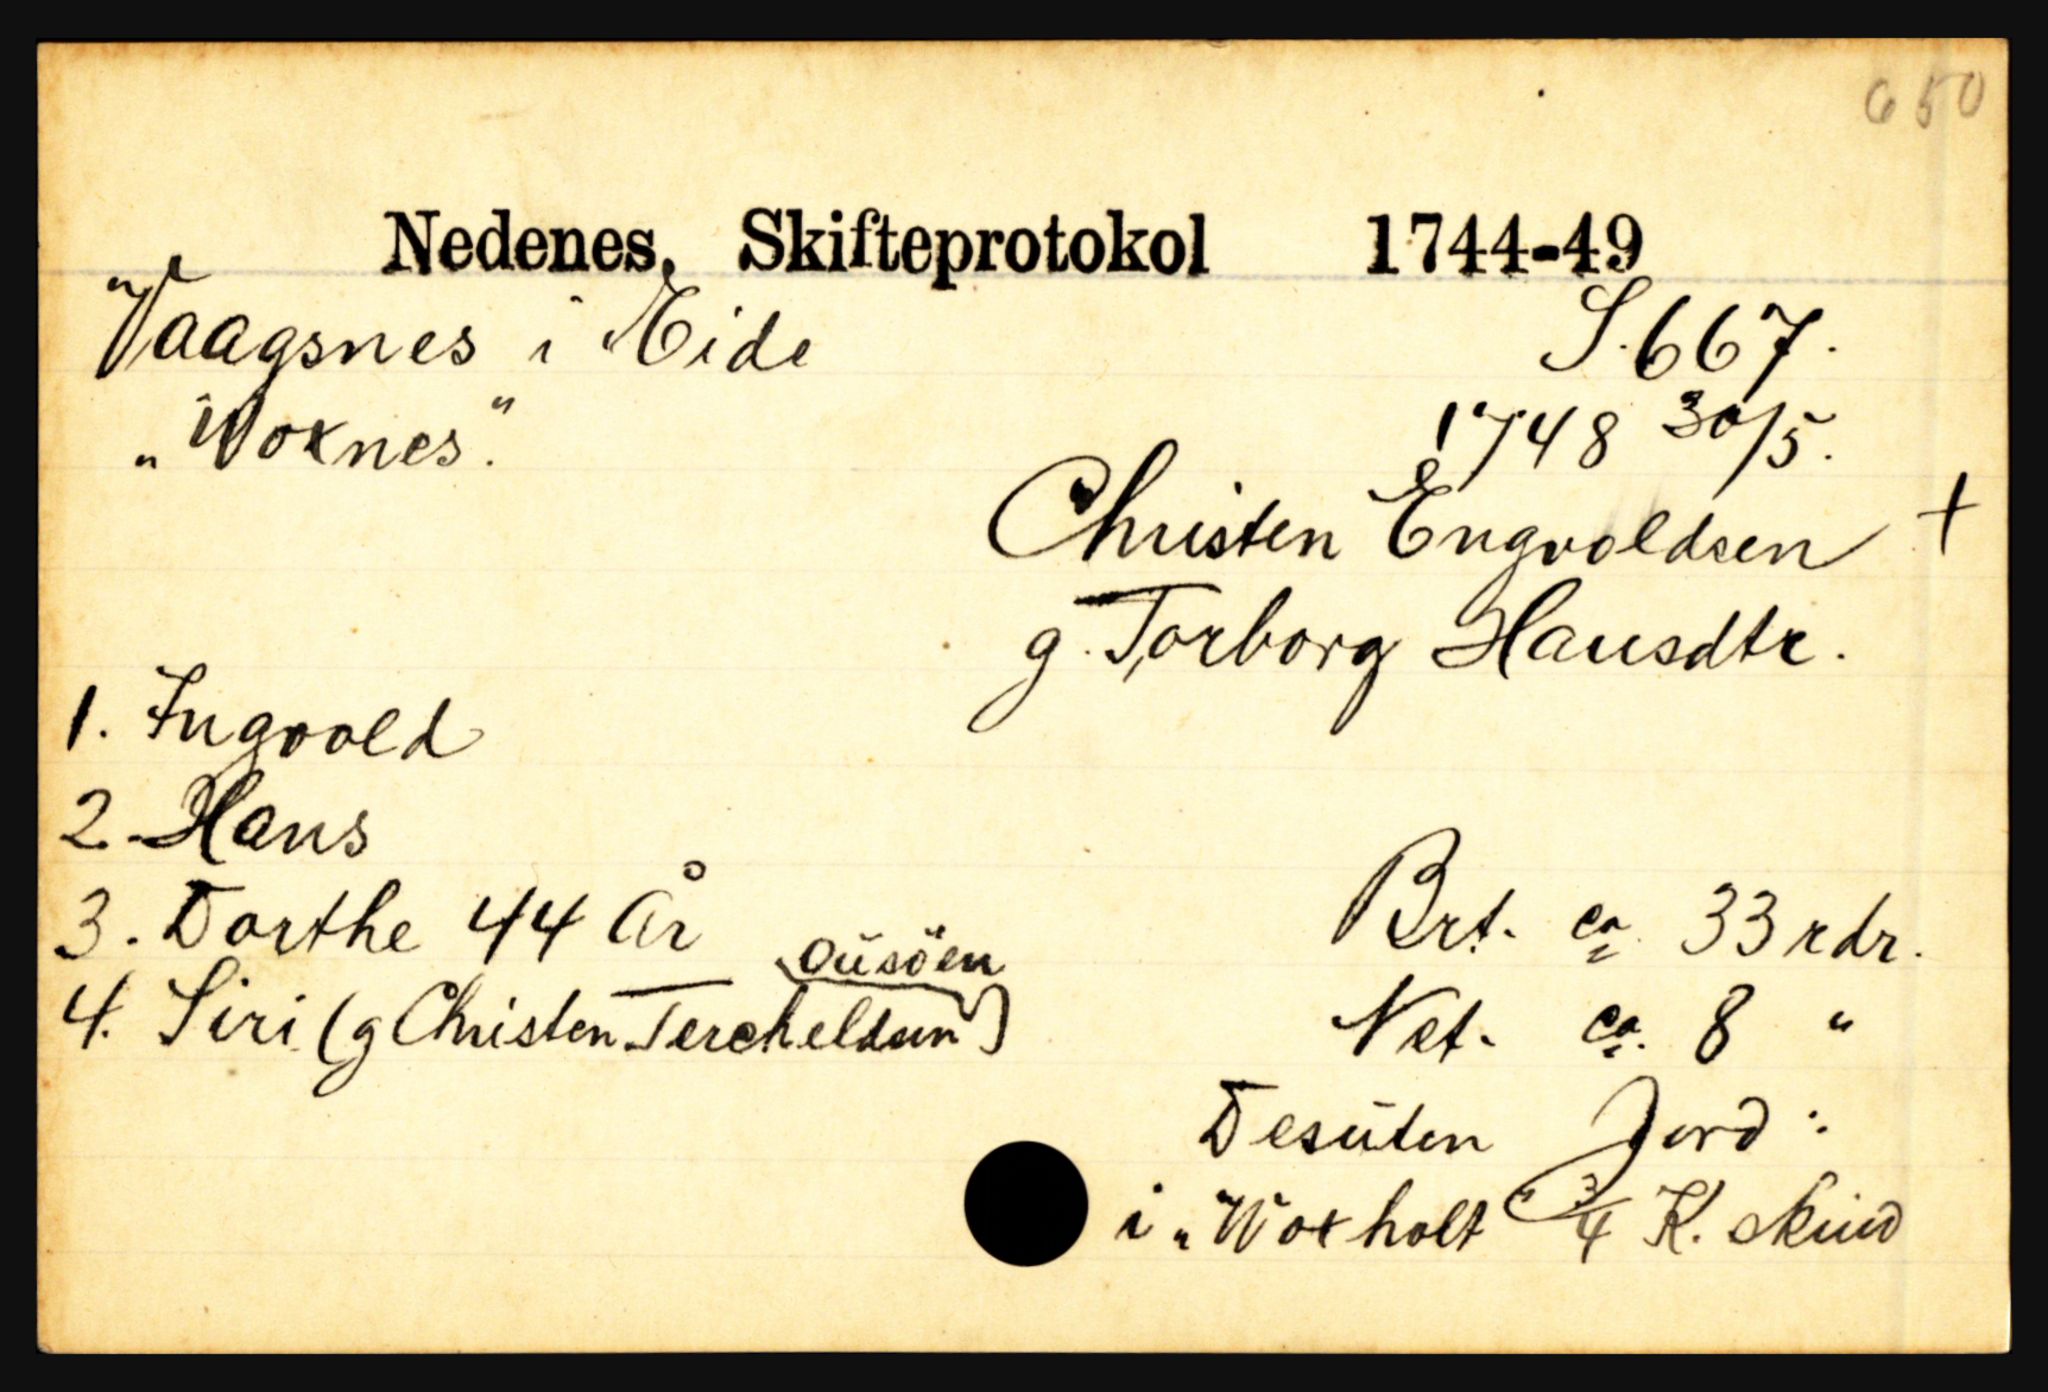 650
Nedenes, Skifteprotokol 1744-49
Vaagsnes i Eide
S. 667.
„Woxnes."
1748 30/5.
Christen Engvoldsen +
g. Torborg Hansdtr.
1. Ingvold
2. Hans
3. Dorthe 44 År
Brt. ca. 33 rdr.
ousöen
4. Siri (g Christen Tercheldsen)
Net. ca. 8 "
Desuten Jord:
i „Woxholt" 3/4 K. skind